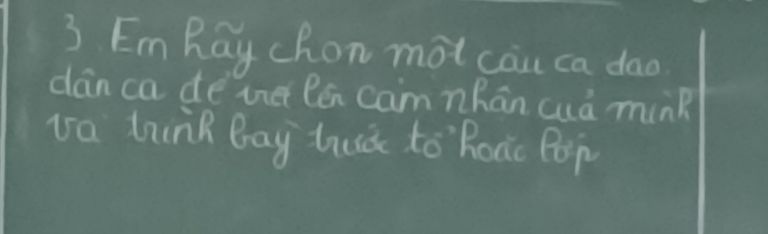 3. Em hãy chọn một câu ca dao.
dân ca để viết lên cảm nhân của mình
và trình bày trước tổ hoặc lớp